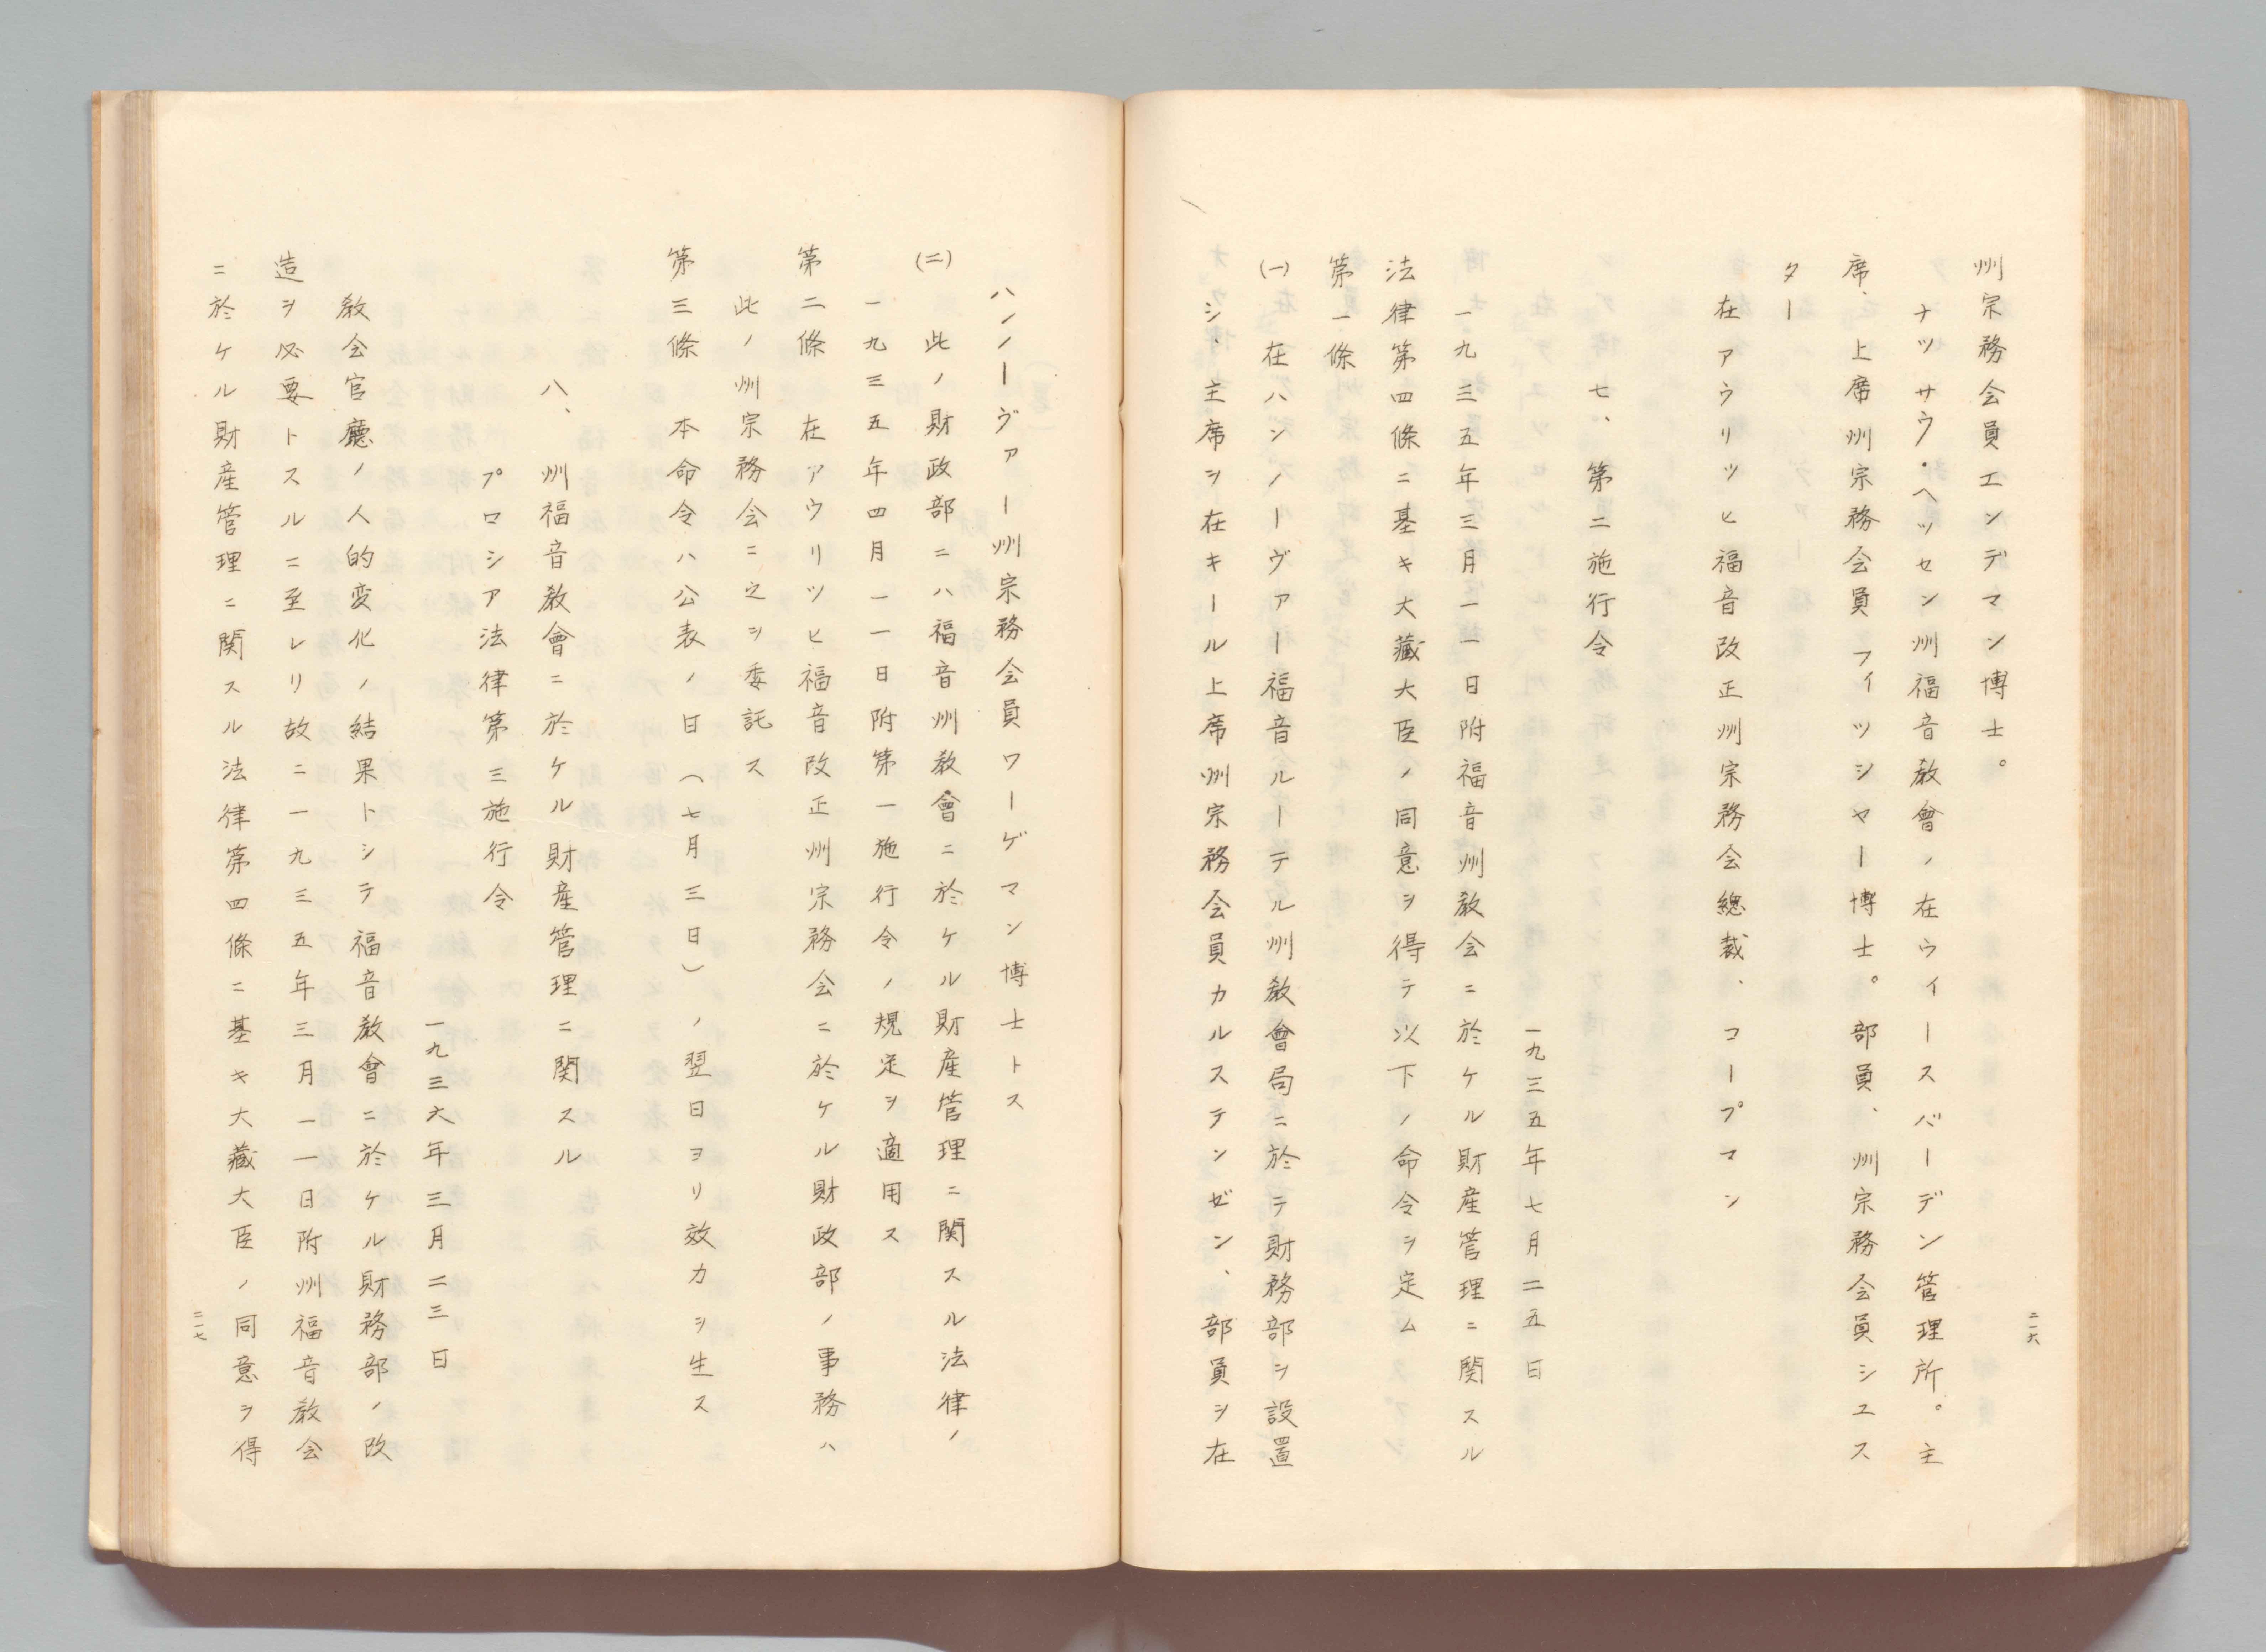 州宗務会員エンデマン博士。
ナツサウ・ヘツセン州福音教會ノ在ウィースバーデン管理所。主
席、上席州宗務会員フィツシヤー博士。部員、州宗務会員シユス
ター
在アウリツヒ福音改正州宗務会總裁、コープマン
七、第二施行令
一九三五年七月二五日
一九三五年三月一一日附福音州教会ニ於ケル財産管理ニ関スル
法律第四條ニ基キ大藏大臣ノ同意ヲ得テ以下ノ命令ヲ定ム
第一條
(一)在ハンノーヴァー福音ルーテル州教會局ニ於テ財務部ヲ設置
シ、主席ヲ在キール上席州宗務会員カルステンゼン、部員ヲ在
二一六
ハンノーヴァー州宗務会員ワーゲマン博士トス
(二)此ノ財政部ニハ福音州教會ニ於ケル財産管理ニ関スル法律ノ
一九三五年四月一一日附第一施行令ノ規定ヲ適用ス
第二條 在アウリツヒ福音改正州宗務会ニ於ケル財政部ノ事務ハ
此ノ州宗務会ニ之ヲ委託ス
第三條 本命令ハ公表ノ日(七月三日)ノ翌日ヨリ效力ヲ生ス
八、州福音教會ニ於ケル財産管理ニ関スル
プロシア法律第三施行令
一九三六年三月二三日
教会官廳ノ人的変化ノ結果トシテ福音教會ニ於ケル財務部ノ改
造ヲ必要トスルニ至レリ故ニ一九三五年三月一一日附州福音教会
ニ於ケル財産管理ニ関スル法律第四條ニ基キ大藏大臣ノ同意ヲ得
二一七